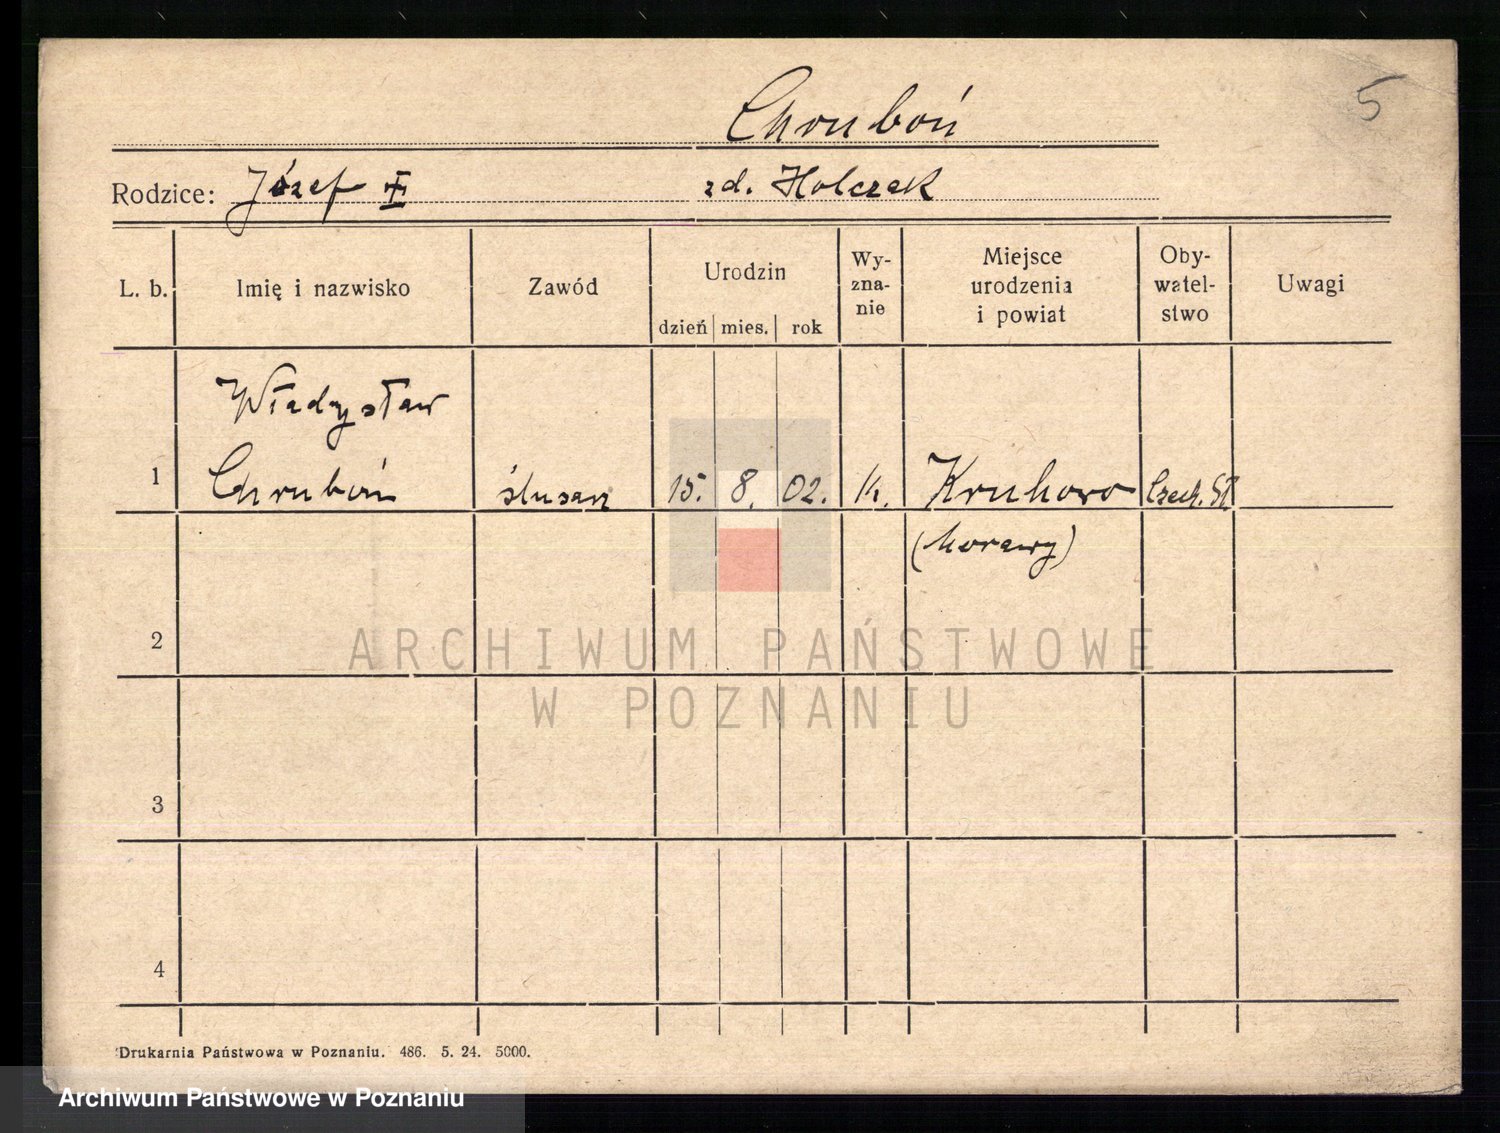 5
Chruboń
Rodzice: Józef ‡ zd. Holczak
L. b. Imię i nazwisko Zawód Urodzin dzień mies. rok Wy-zna-nie Miejsce urodzenia i powiat Oby-watel-stwo Uwagi
Władysław
1 Chruboń ślusarz 15. 8. 02. k. Kruhowo Czech. Sł.
(Morawy)
2
ARCHIWUM PAŃSTWOWE
W POZNANIU
3
4
Drukarnia Państwowa w Poznaniu. 486. 5. 24. 5000.
Archiwum Państwowe w Poznaniu